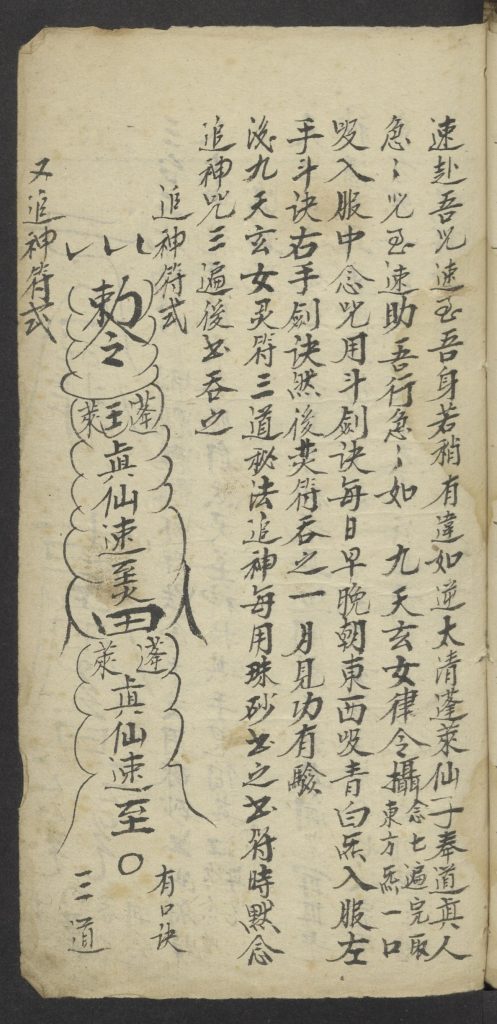 速赴吾咒速至吾身若稍有違如逆太清蓬萊仙子奉道真人
急〻咒至速助吾行急〻如　九天玄女律令攝念七遍完取東方炁一口
吸入服中念咒用斗劍訣每日早晚朝東西吸青白炁入服左
手斗訣右手劍訣然後焚符吞之一月見功有驗
後九天玄女灵符三道秘法追神每用珠砂书之书符時默念
追神咒三遍後书吞之
追神符式
有口诀
敕令
蓬王萊
真仙速至
田
蓬萊
真仙速至
三道
又追神符式